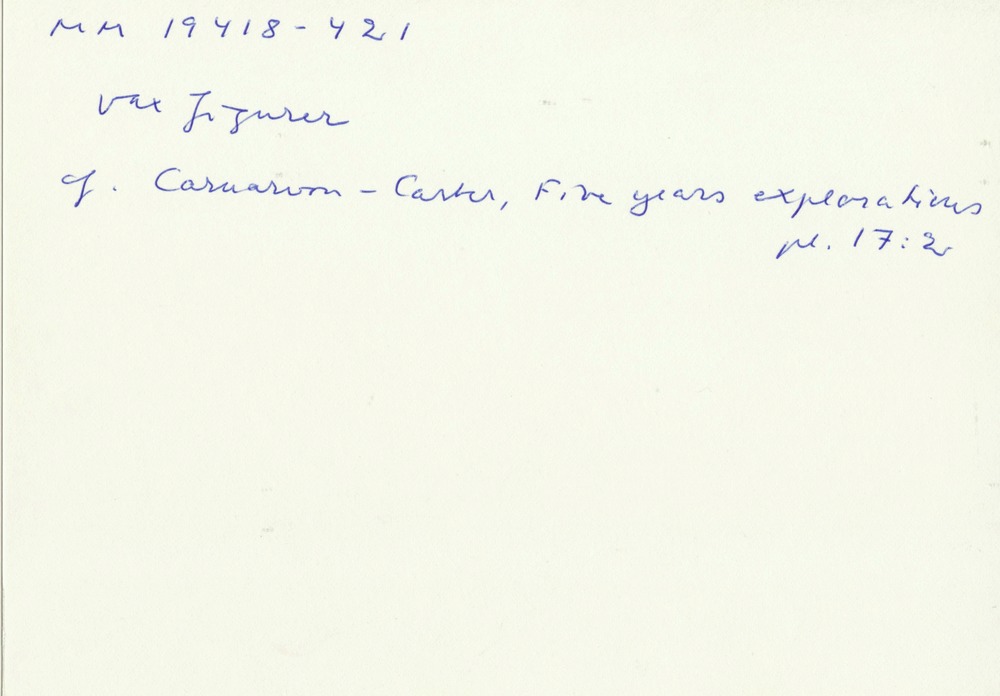 MM 19418-421
vax figurer
cf. Carnarvon - Carter, Five years explorations
pl. 17:2